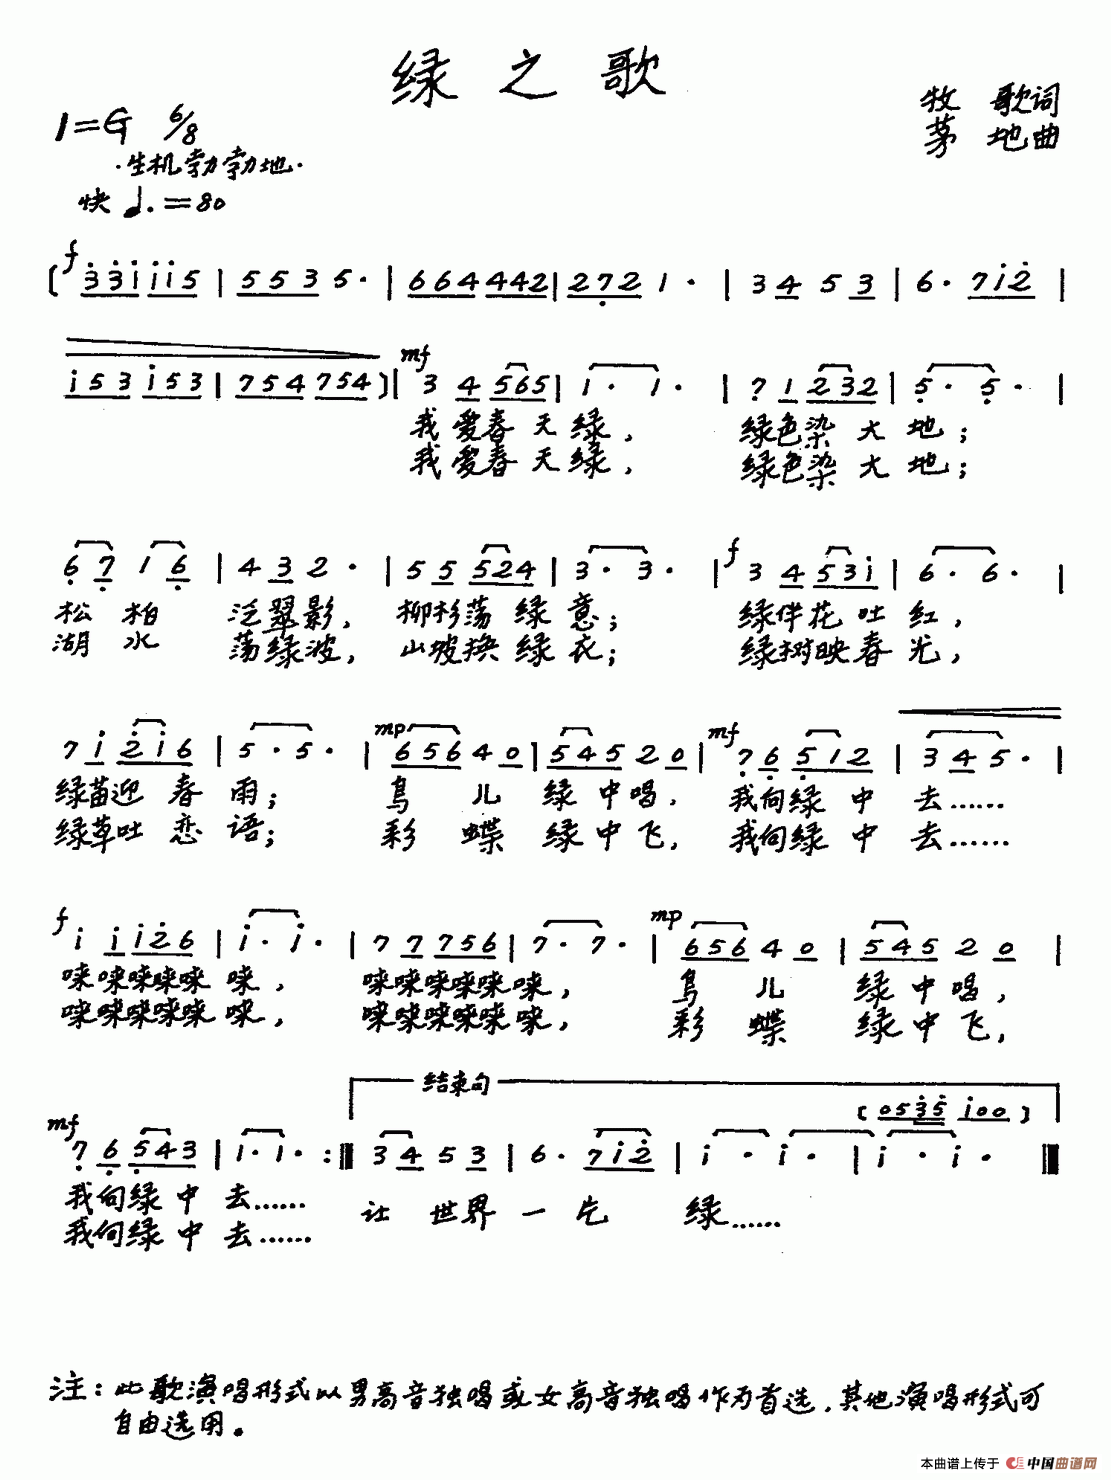 绿之歌
1=G 6/8
牧 歌词
茅 地曲
·生机勃勃地·
快 ♩.=80
f
( 3 3 i i i 5 | 5 5 3 5 · | 6 6 4 4 4 2 | 2 7 2 1 · | 3 4 5 3 | 6 · 7 i 2 |
mf
i 5 3 i 5 3 | 7 5 4 7 5 4 ) | 3 4 5 6 5 | 1 · 1 · | 7 1 2 3 2 | 5 · 5 · |
我 爱春 天 绿, 绿色染 大 地;
我 爱春 天 绿, 绿色染 大 地;
f
6 7 1 6 | 4 3 2 · | 5 5 5 2 4 | 3 · 3 · | 3 4 5 3 i | 6 · 6 · |
松 柏 泛翠影, 柳杉荡 绿 意; 绿伴花 吐 红,
湖 水 荡绿波, 山坡换 绿 衣; 绿树映 春 光,
mp mf
7 i 2 i 6 | 5 · 5 · | 6 5 6 4 0 | 5 4 5 2 0 | 7 6 5 1 2 | 3 4 5 · |
绿苗迎 春 雨; 鸟 儿 绿 中唱, 我向绿 中 去……
绿草吐 恋 语; 彩 蝶 绿 中飞, 我向绿 中 去……
f mp
i i i 2 6 | i · i · | 7 7 7 5 6 | 7 · 7 · | 6 5 6 4 0 | 5 4 5 2 0 |
唻唻唻唻唻 唻, 唻唻唻唻唻唻, 鸟 儿 绿 中 唱,
唻唻唻唻唻 唻, 唻唻唻唻唻唻, 彩 蝶 绿 中 飞,
结束句
( 0 5 3 5 i 0 0 )
mf
7 6 5 4 3 | 1 · 1 · :‖ 3 4 5 3 | 6 · 7 i 2 | i · i · | i · i · ‖
我向绿 中 去…… 让 世界 一 片 绿……
我向绿 中 去……
注: 此歌演唱形式以男高音独唱或女高音独唱作为首选,其他演唱形式可
自由选用。
本曲谱上传于 中国曲谱网